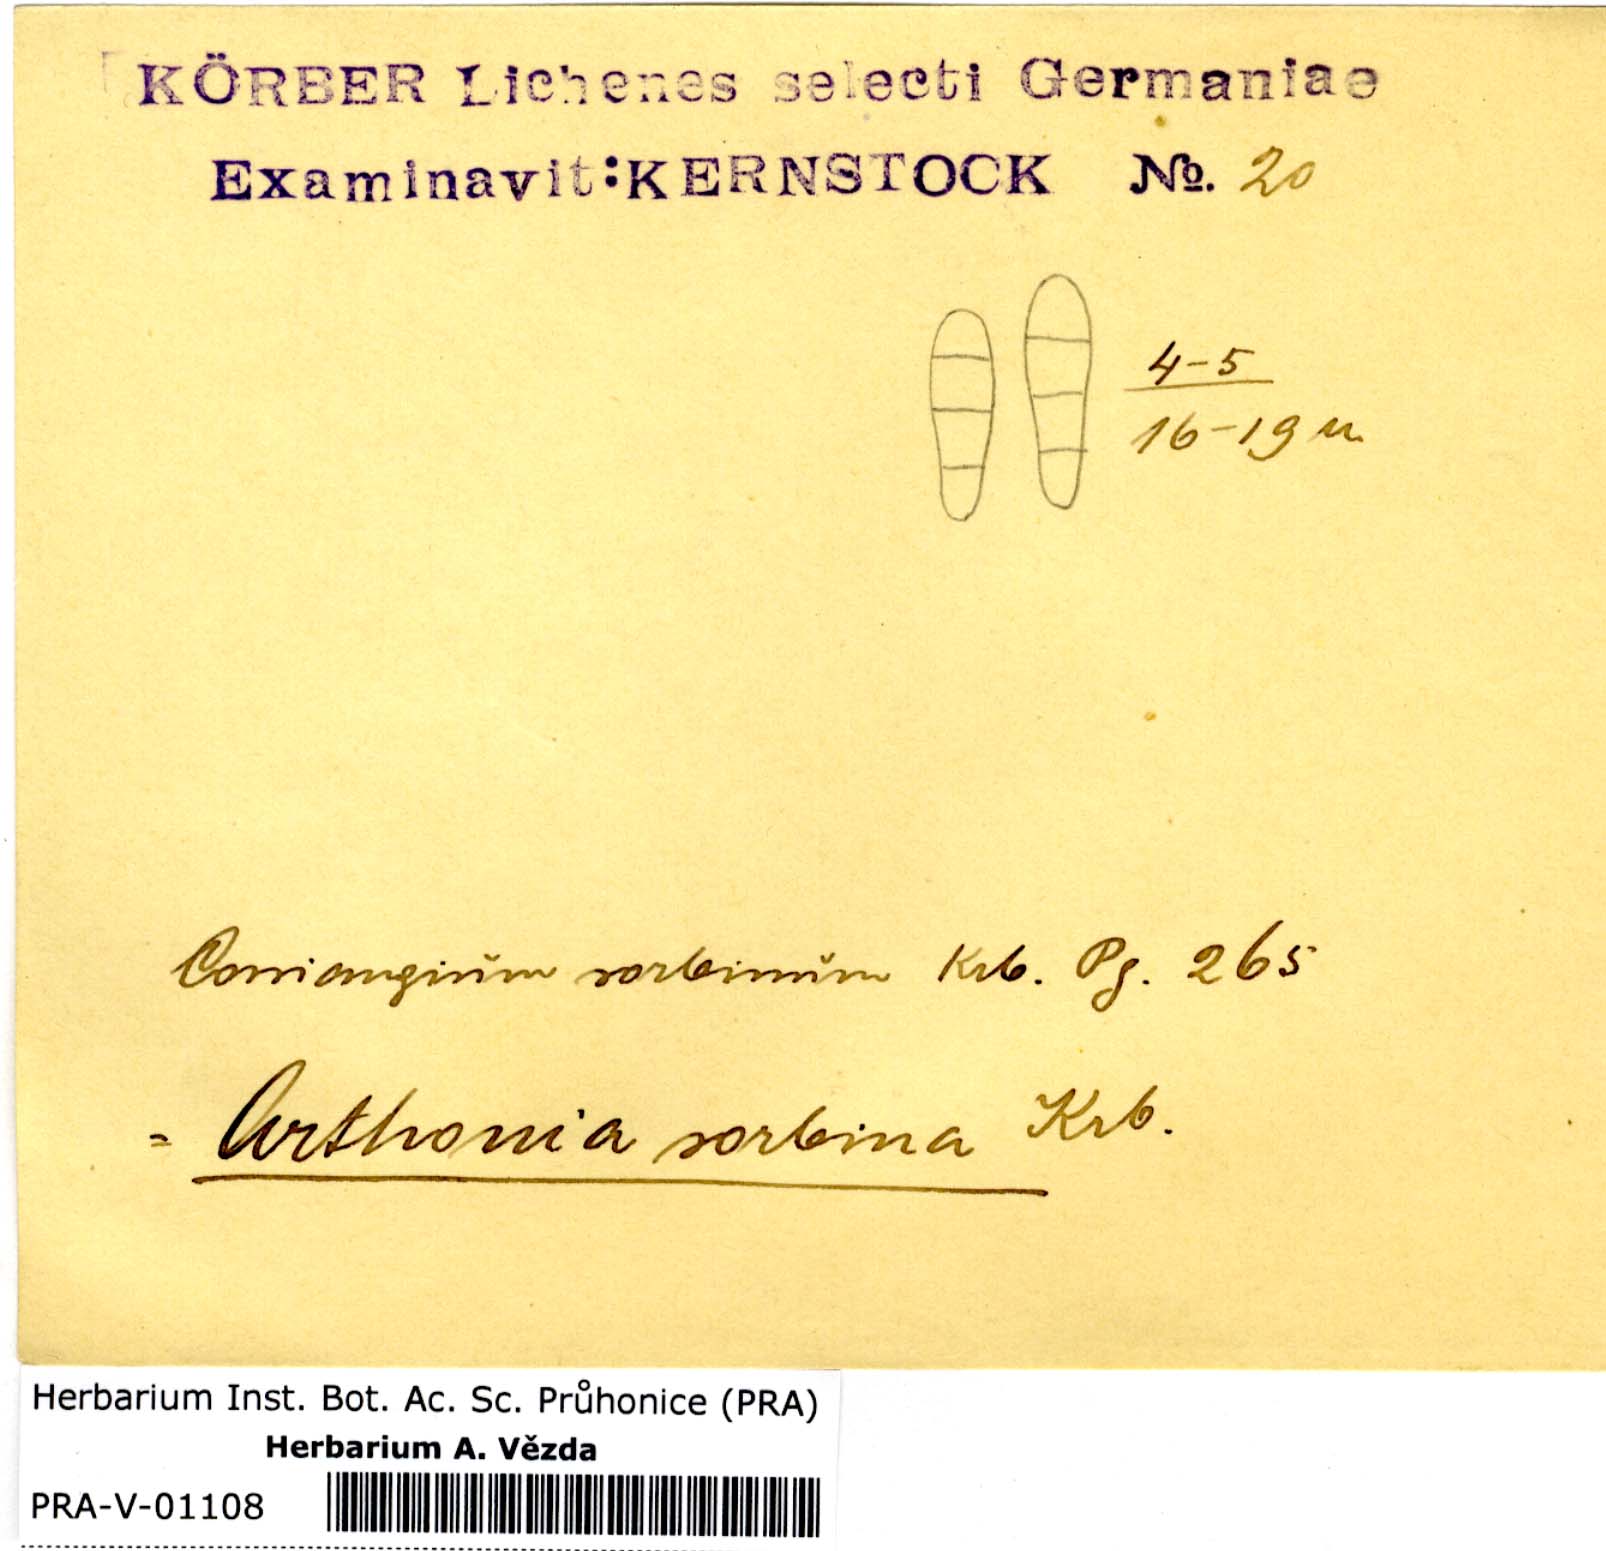 KÖRBER Lichenes selecti Germaniae
Examinavit: KERNSTOCK No. 20
4-5
16-19 µ
Coniangium sorbinum Krb. Pg. 265
= Arthonia sorbina Krb.
Herbarium Inst. Bot. Ac. Sc. Průhonice (PRA)
Herbarium A. Vězda
PRA-V-01108